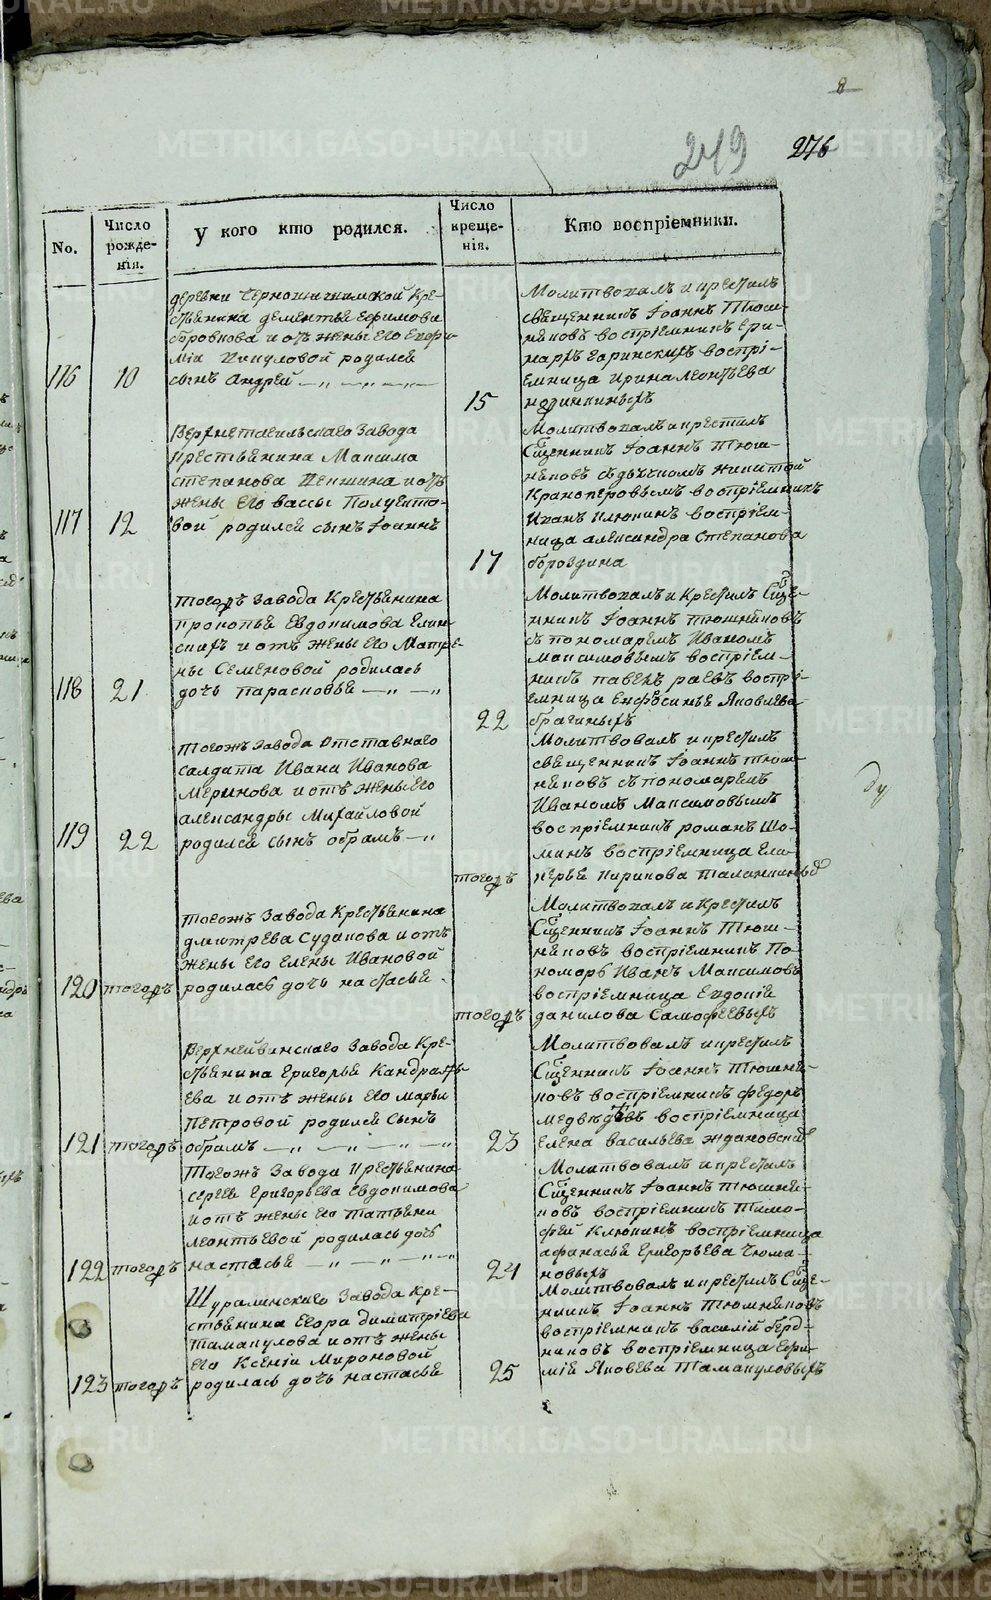 8
249 276
No.
Число рожде- нія.
У кого кто родился.
Число креще- нія.
Кто воспріемники.
деревни Черношишимской Кре-
стьянина Дементья Ефимова
и отъ жены Его Евфи-
міи родился
116 10 сынъ Андрей
Молитвовалъ и крестилъ
священникъ Іоаннъ Тюш-
няковъ воспріемникъ
воспрі-
емница Ирина Леонтьева
15
Верхнетагильскаго Завода
крестьянина Максима
Степанова и отъ
жены Его Вассы Полуекто-
117 12 вой родился сынъ Іоаннъ
Молитвовалъ и крестилъ
Сщенникъ Іоаннъ Тюш-
няковъ съ дьячкомъ Никитой
воспріемникъ
Иванъ Клюкинъ воспріем-
ница Александра Степанова
17 Бороздина
тогожъ Завода Крестьянина
Прокопья Евдокимова
и отъ жены Его Матре-
ны Семеновой родилась
118 21 дочь Парасковья
Молитвовалъ и Крестилъ Сще-
нникъ Іоаннъ Тюшняковъ
съ пономаремъ Иваномъ
Максимовымъ воспріем-
никъ Павелъ Раевъ воспрі-
емница Енфросинья Яковлева
22 Брагиныхъ
тогожъ завода Отставнаго
салдата Ивана Иванова
Меринова и отъ жены Его
Александры Михайловой
119 22 родился сынъ Обрамъ
Молитвовалъ и крестилъ
священникъ Іоаннъ Тюш-
няковъ съ пономаремъ
Иваномъ Максимовымъ
воспріемникъ Романъ Шо-
минъ воспріемница
тогожъ
тогожъ Завода Крестьянина
Дмитрева Судакова и отъ
жены Его Елены Ивановой
120 тогожъ родилась дочь Настасья
Молитвовалъ и Крестилъ
Сщенникъ Іоаннъ Тюш-
няковъ воспріемникъ По-
номарь Иванъ Максимовъ
воспріемница Евдокія
тогожъ Данилова Самофеевыхъ
Верхнейвинскаго Завода Кре-
стьянина Григорья Кандрать-
ева и отъ жены Его Марьи
Петровой родился сынъ
121 тогожъ обрамъ
Молитвовалъ и крестилъ
Сщенникъ Іоаннъ Тюшня-
ковъ воспріемникъ Федоръ
Медвѣдевъ воспріемница
23 Елена Васильева
Тогожъ Завода Крестьянина
Сергея Григорьева Евдокимова
и отъ жены Его Татьяны
Леонтьевой родилась дочь
122 тогожъ настасья
Молитвовалъ и крестилъ
Сщенникъ Іоаннъ Тюшня-
ковъ воспріемникъ Тимо-
фей Клюкинъ воспріемница
Афанасья Григорьева Чюма-
24 ковыхъ
Шуралинскаго Завода Кре-
стьянина Егора Димитріева
Таманулова и отъ жены
Его Ксеніи Мироновой
123 тогожъ родилась дочь настасья
Молитвовалъ и крестилъ Сще-
нникъ Іоаннъ Тюшняковъ
воспріемникъ Василій Берд-
никовъ воспріемница Ефи-
25 мія Яковева Тамануловыхъ
METRIKI.GASO-URAL.RU